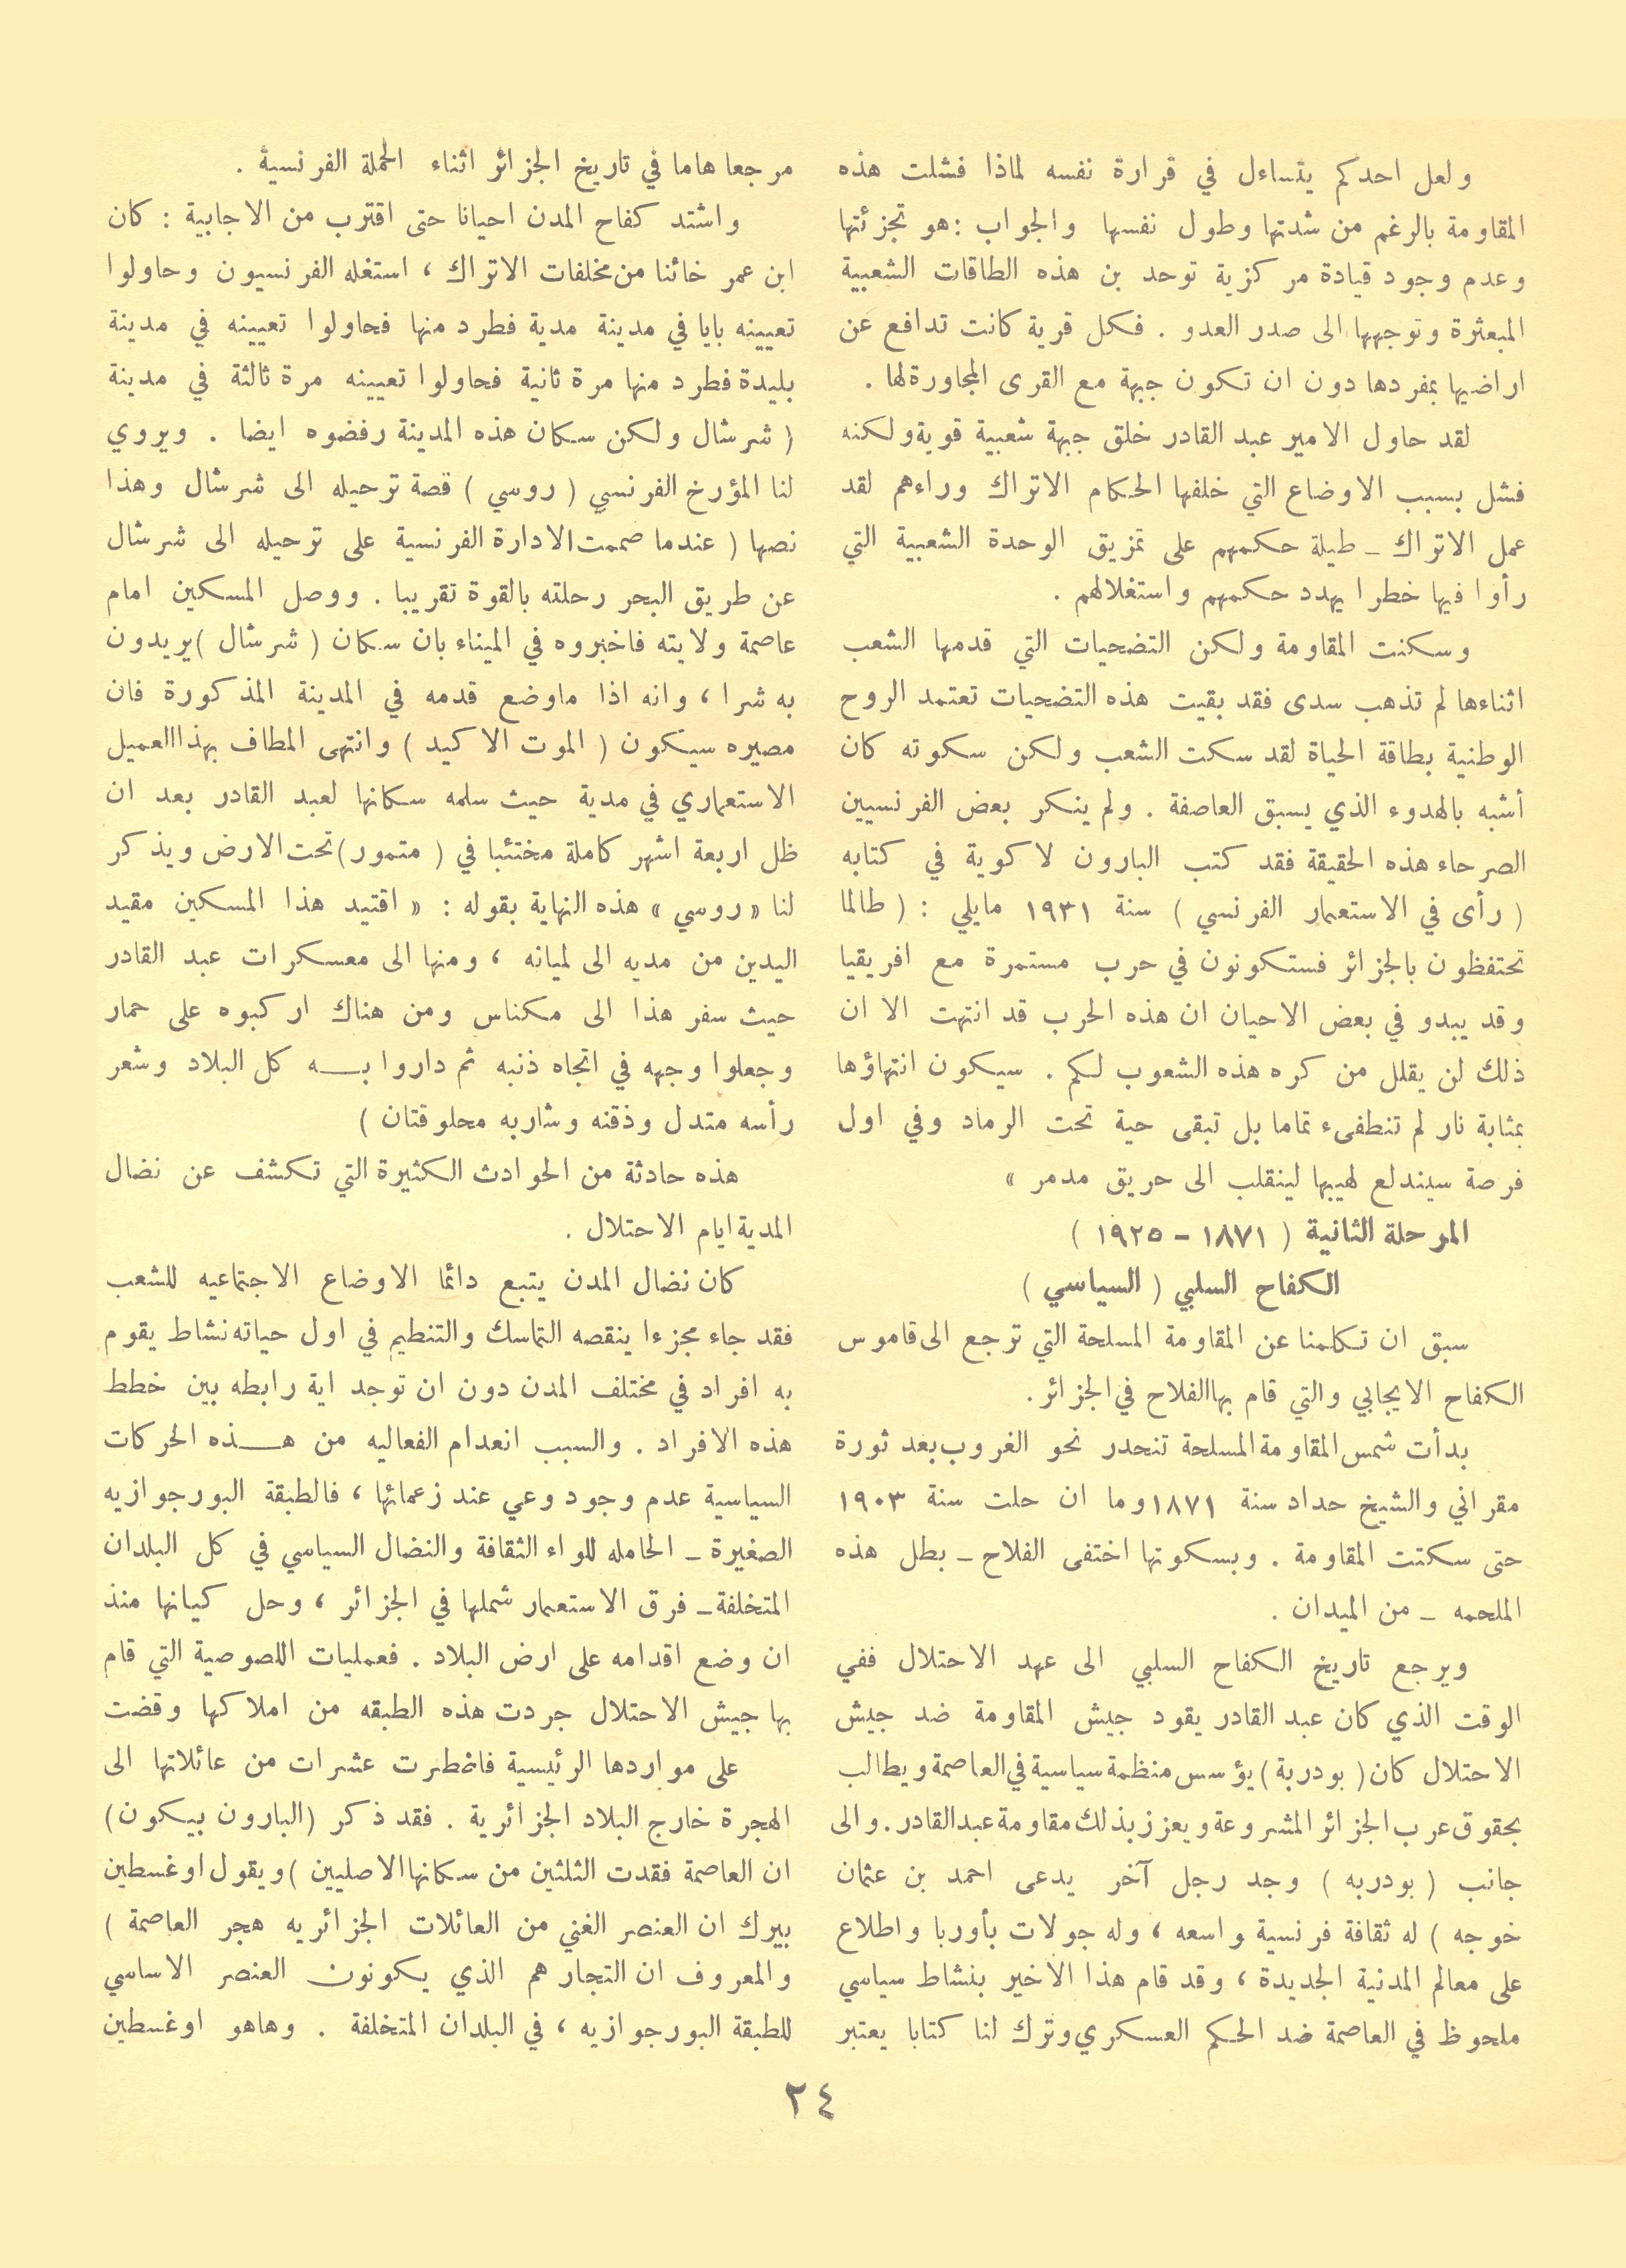 ولعل احدكم يتساءل في قرارة نفسه لماذا فشلت هذه
المقاومة بالرغم من شدتها وطول نفسها والجواب : هو تجزئتها
وعدم وجود قيادة مركزية توحد بن هذه الطاقات الشعبية
المبعثرة وتوجهها الى صدر العدو . فكل قرية كانت تدافع عن
اراضيها بمفردها دون ان تكون جبهة مع القرى المجاورة لها .
لقد حاول الامير عبد القادر خلق جبهة شعبية قوية ولكنه
فشل بسبب الاوضاع التي خلفها الحكام الاتراك وراءهم لقد
عمل الاتراك ـ طيلة حكمهم على تمزيق الوحدة الشعبية التي
رأوا فيها خطرا يهدد حكمهم واستغلالهم .
وسكنت المقاومة ولكن التضحيات التي قدمها الشعب
اثناءها لم تذهب سدى فقد بقيت هذه التضحيات تعتمد الروح
الوطنية بطاقة الحياة لقد سكت الشعب ولكن سكوته كان
أشبه بالهدوء الذي يسبق العاصفة . ولم ينكر بعض الفرنسيين
الصرحاء هذه الحقيقة فقد كتب البارون لاكوية في كتابه
( رأى في الاستعمار الفرنسي ) سنة ١٩٣١ مايلي : ( طالما
تحتفظون بالجزائر فستكونون في حرب مستمرة مع افريقيا
وقد يبدو في بعض الاحيان ان هذه الحرب قد انتهت الا ان
ذلك لن يقلل من كره هذه الشعوب لكم . سيكون انتهاؤها
بمثابة نار لم تنطفىء تماما بل تبقى حية تحت الرماد وفي اول
فرصة سيندلع لهيبها لينقلب الى حريق مدمر »
المرحلة الثانية ( ١٨٧١ - ١٩٢٥ )
الكفاح السلبي ( السياسي )
سبق ان تكلمنا عن المقاومة المسلحة التي ترجع الى قاموس
الكفاح الايجابي والتي قام بها الفلاح في الجزائر .
بدأت شمس المقاومة المسلحة تنحدر نحو الغروب بعد ثورة
مقراني والشيخ حداد سنة ١٨٧١ وما ان حلت سنة ١٩٠٣
حتى سكتت المقاومة . وبسكوتها اختفى الفلاح ـ بطل هذه
الملحمه ـ من الميدان .
ويرجع تاريخ الكفاح السلبي الى عهد الاحتلال ففي
الوقت الذي كان عبد القادر يقود جيش المقاومة ضد جيش
الاحتلال كان ( بودربة ) يؤسس منظمة سياسية في العاصمة ويطالب
بحقوق عرب الجزائر المشروعة ويعزز بذلك مقاومة عبد القادر . والى
جانب ( بودربه ) وجد رجل آخر يدعى احمد بن عثمان
خوجه ) له ثقافة فرنسية واسعه ، وله جولات بأوربا واطلاع
على معالم المدنية الجديدة ، وقد قام هذا الاخير بنشاط سياسي
ملحوظ في العاصمة ضد الحكم العسكري وترك لنا كتابا يعتبر
مرجعا هاما في تاريخ الجزائر اثناء الحملة الفرنسية .
واشتد كفاح المدن احيانا حتى اقترب من الاجابية : كان
ابن عمر خائنا من مخلفات الاتراك ، استغله الفرنسيون وحاولوا
تعيينه بايا في مدينة مدية فطرد منها فحاولوا تعيينه في مدينة
بليدة فطرد منها مرة ثانية فحاولوا تعيينه مرة ثالثة في مدينة
( شرشال ولكن سكان هذه المدينة رفضوه ايضا . ويروي
لنا المؤرخ الفرنسي ( روسي ) قصة ترحيله الى شرشال وهذا
نصها ( عندما صممت الادارة الفرنسية على ترحيله الى شرشال
عن طريق البحر رحلته بالقوة تقريبا . ووصل المسكين امام
عاصمة ولايته فاخبروه في الميناء بان سكان ( شرشال ) يريدون
به شرا ، وانه اذا ماوضع قدمه في المدينة المذكورة فان
مصيره سيكون ( الموت الاكيد ) وانتهى المطاف بهذاالعميل
الاستعماري في مدية حيث سلمه سكانها لعبد القادر بعد ان
ظل اربعة اشهر كاملة مختئبا في ( متمور ) تحت الارض ويذكر
لنا « روسي » هذه النهاية بقوله : « اقتيد هذا المسكين مقيد
اليدين من مديه الى لميانه ، ومنها الى معسكرات عبد القادر
حيث سفر هذا الى مكناس ومن هناك اركبوه على حمار
وجعلوا وجهه في اتجاه ذنبه ثم داروا بـه كل البلاد وشعر
رأسه متدل وذقنه وشاربه محلوقتان )
هذه حادثة من الحوادث الكثيرة التي تكشف عن نضال
المدية ايام الاحتلال .
كان نضال المدن يتبع دائما الاوضاع الاجتماعيه للشعب
فقد جاء مجزءا ينقصه التماسك والتنطيم في اول حياته نشاط يقوم
به افراد في مختلف المدن دون ان توجد اية رابطه بين خطط
هذه الافراد . والسبب انعدام الفعاليه من هـذه الحركات
السياسية عدم وجود وعي عند زعمائها ، فالطبقة البورجوازيه
الصغيرة ـ الحامله للواء الثقافة والنضال السياسي في كل البلدان
المتخلفة ـ فرق الاستعمار شملها في الجزائر ، وحل كيانها منذ
ان وضع اقدامه على ارض البلاد . فعمليات اللصوصية التي قام
بها جيش الاحتلال جردت هذه الطبقه من املاكها وقضت
على مواردها الرئيسية فاضطرت عشرات من عائلاتها الى
الهجرة خارج البلاد الجزائرية . فقد ذكر ( البارون بيكون )
ان العاصمة فقدت الثلثين من سكانها الاصليين ) ويقول اوغسطين
بيرك ان العنصر الغني من العائلات الجزائريه هجر العاصمة )
والمعروف ان التجار هم الذي يكونون العنصر الاساسي
للطبقة البورجوازيه ، في البلدان المتخلفة . وهاهو اوغسطين
٢٤